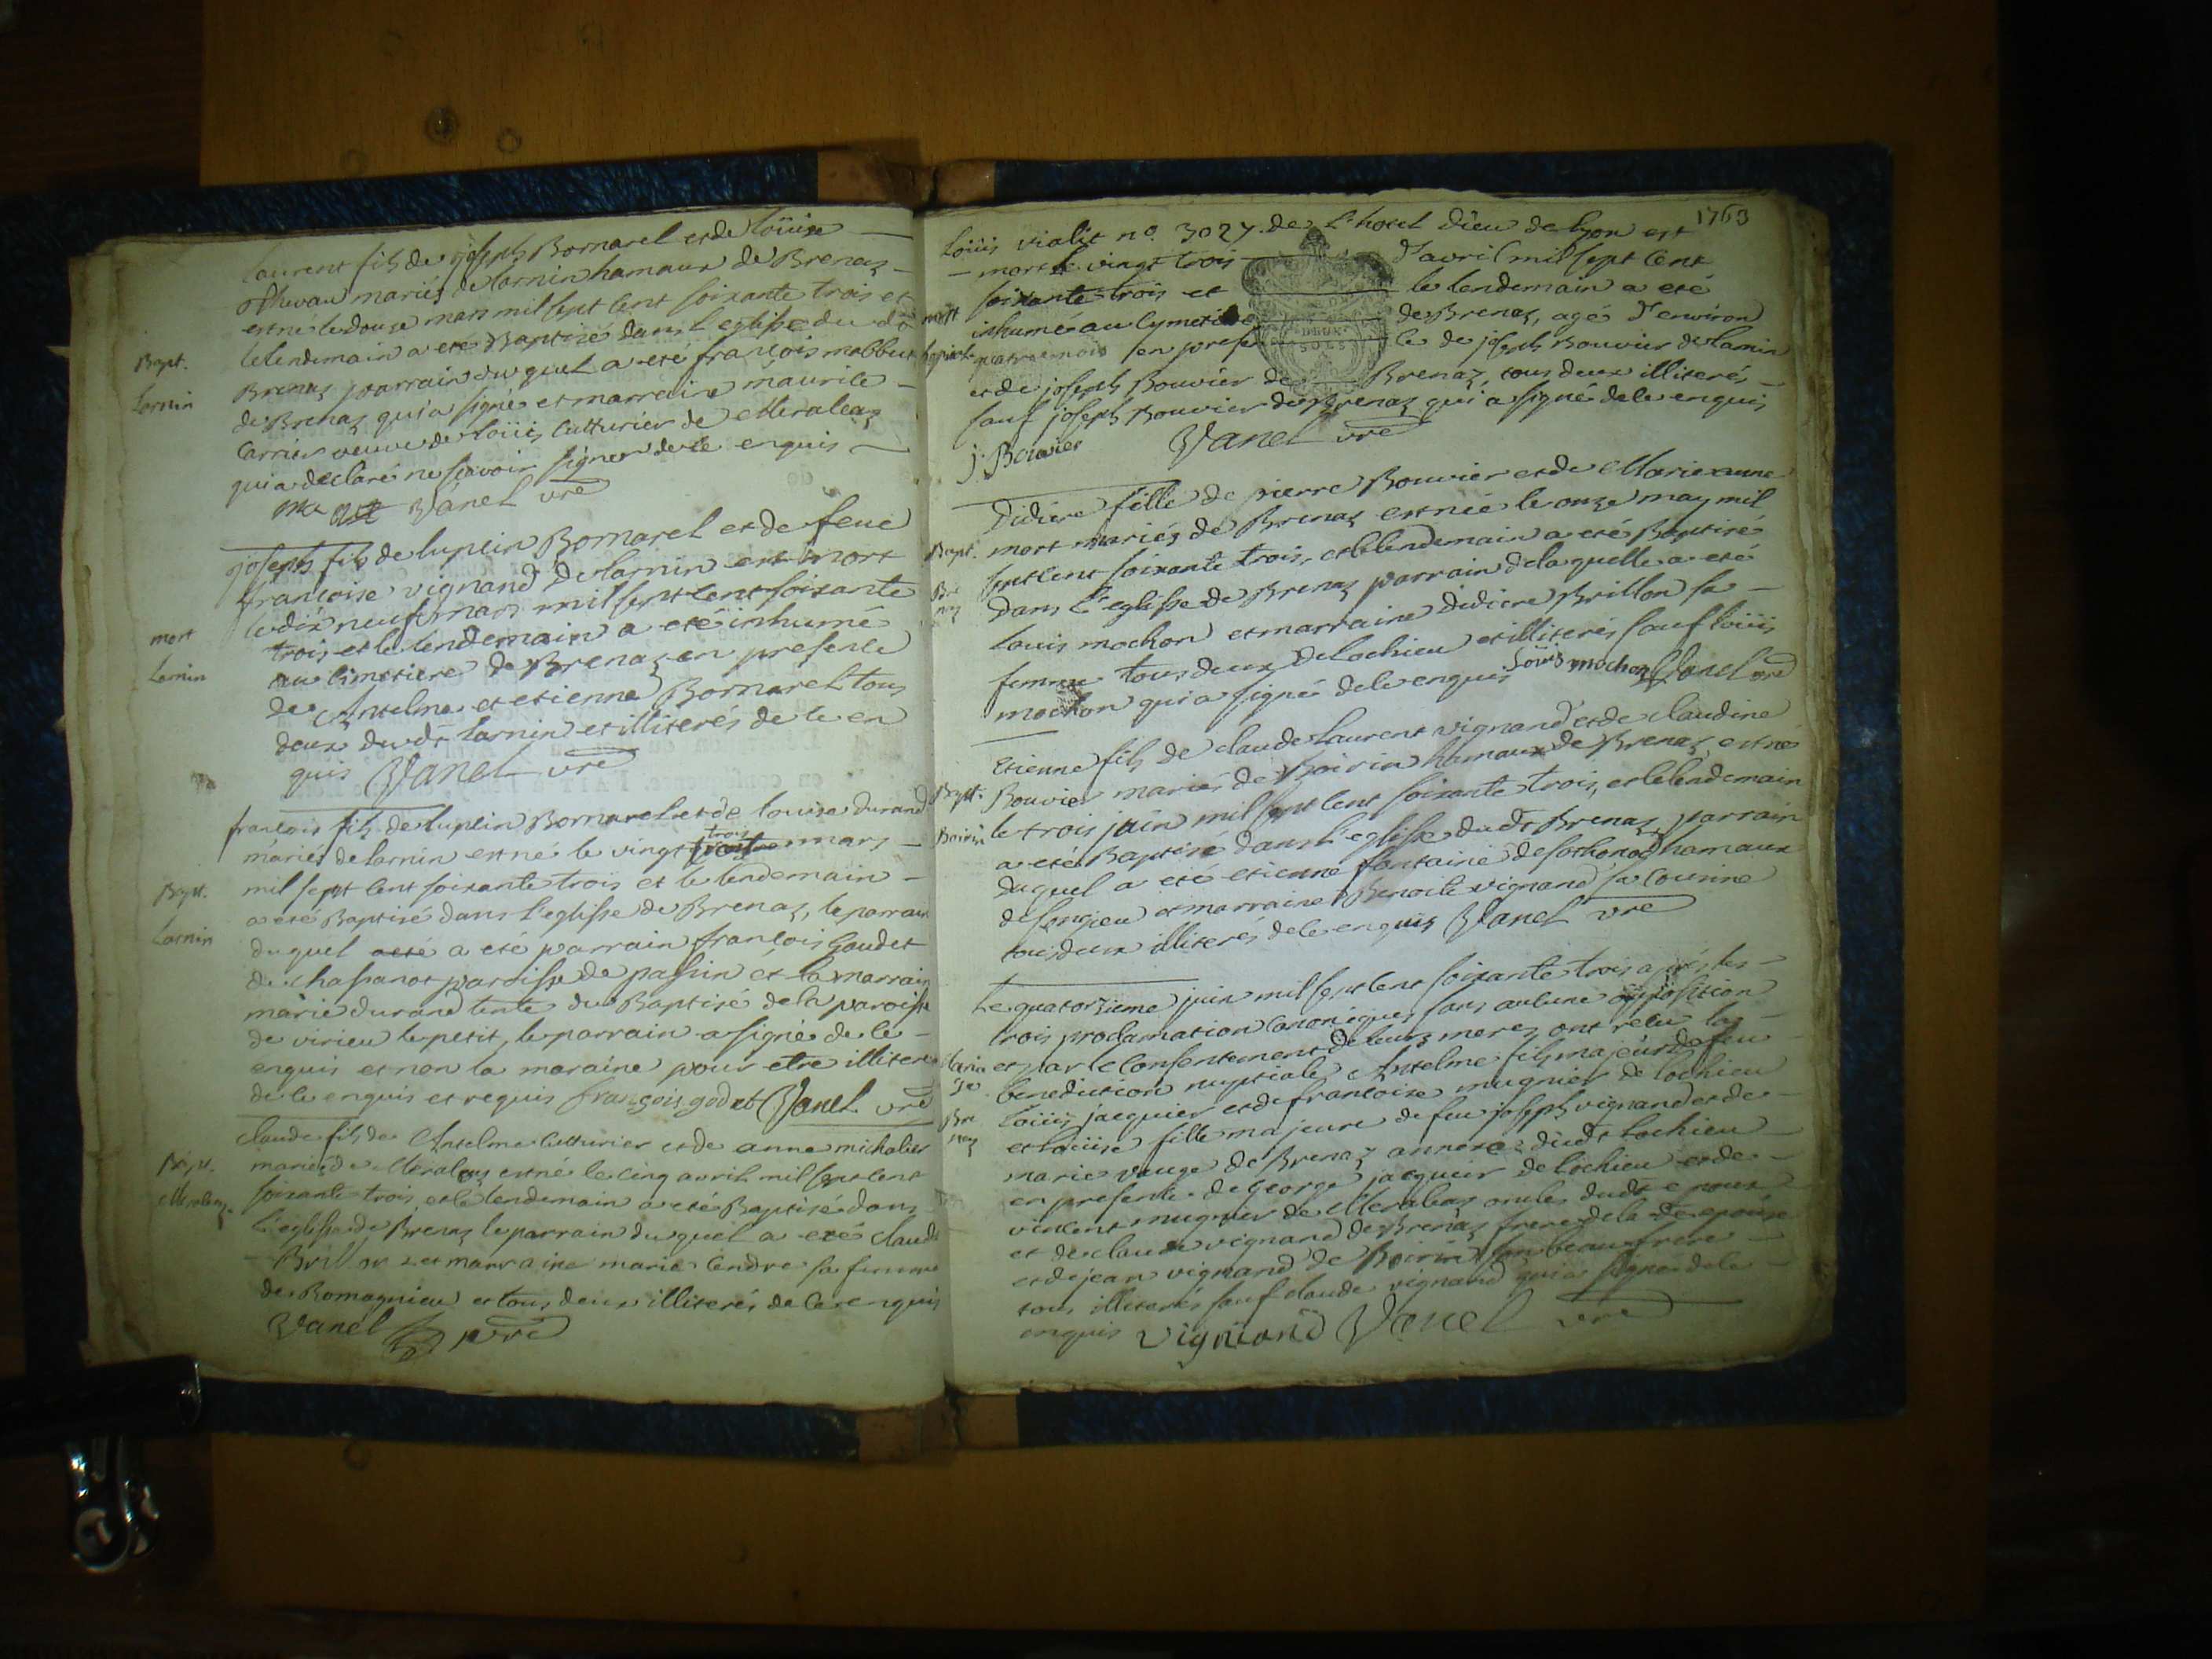 Laurent fils de joseph Bornarel et de loüise
mariés de lornin hamaux de Brenaz
est né le douze mars mil sept cent soixante trois et
le lendemain a eté Baptisé dans l'eglisse du dt
Bapt.
Brenaz parrain du quel a eté françois
Lornin
de Brenaz qui a signé et marraine maurice
Carrier veuve de loüis Cutturier de Meraleaz
qui a declaré ne scavoir signer de ce enquis
Vanel vre
joseph fils de lupein Bornarel et de feue
francoise vignand de lornin est mort
le dix neuf mars mil sept cent soixante
mort
trois et le lendemain a eté inhumé
Lornin
au cimetiere de Brenaz en presence
de Anselme et etienne Bornarel tous
deux du dt lornin et illiterés de ce en
quis Vanel vre
francois fils de lupein Bornarel et de louise durand
mariés de lornin est né le vingt trois mars
Bapt.
mil sept cent soixante trois et le lendemain
a eté Baptisé dans l'eglisse de Brenaz, le parrain
Lornin
du quel a eté parrain francois Goudet
de chassanot paroisse de passin et la marrain
marie durand tente du Baptisé de la paroisse
de virieu le petit, le parrain a signé de ce
enquis et non la maraine pour etre illiteré
de ce enquis et requis françois godet Vanel vre
Claude fils de Anselme Cutturier et de anne michalier
Bapt.
mariés de Meraleaz est né le cinq avril mil sept cent
Meraleaz.
soixante trois, et le lendemain a eté Baptisé dans
l'eglisse de Brenaz le parrain du quel a eté claude
Brillon et marraine marie Cendre sa femme
de Romagnieu et tous deux illiterés de ce enquis
Vanel pvre
1763
Loüis vialit no. 3027. de l'hotel Dieu de lyon est
mort le vingt trois d'avril mil sept cent
soixante trois et le lendemain a eté
mort
inhumé au Cymetiere de Brenaz, agé d'environ
DEUX SOLS
quatre mois en presence de joseph Bouvier de lornin
et de joseph Bouvier de Brenaz, tous deux illiterés
sauf joseph Bouvier de Brenaz qui a signé de ce enquis
j. Bouvier Vanel vre
Didiere fille de pierre Bouvier et de Marie anne
Bapt.
mort mariés de Brenaz est née le onze may mil
Brenaz
sept cent soixante trois, et le lendemain a eté Baptisé
dans l'eglisse de Brenaz parrain de la quelle a eté
Louis mochon et marraine Didiere Brillon sa
femme tous deux de Lochieu et illiterés sauf loüis
mochon qui a signé de ce enquis Loüis mochon Vanel vre
Etienne fils de claude Laurent vignand et de claudine
Bapt.
Bouvier mariés de Boirin hamaux de Brenaz est né
Boirin
le trois juin mil sept cent soixante trois, et le lendemain
a eté Baptisé dans l'eglisse du dt Brenaz, parrain
du quel a eté etienne fontaine de sothonod hamaux
de songieu et marraine Benoite vignand sa Cousine
tous deux illiterés de ce enquis Vanel vre
Le quatorzieme juin mil sept cent soixante trois après les
trois proclamation Canoniques sans aulcune opposition
et par le Consentement de leurs meres ont recu la
benediction nuptiale Anselme fils majeur de feu
Loüis jacquier et de francoise mugnier de lochieu
Brenaz
et loüise fille majeure de feu joseph vignand et de
marie vauge de Brenaz annexe du dt Lochieu
en presence de George jacquier de lochieu et de
vincent mugnier de Meraleaz oncle du dt epoux
et de claude vignand de Brenaz frere de la dte epouse
et de jean vignand de Boirin son beau frere
tous illiterés sauf claude vignand qui a signé de ce
enquis vignand Vanel vre